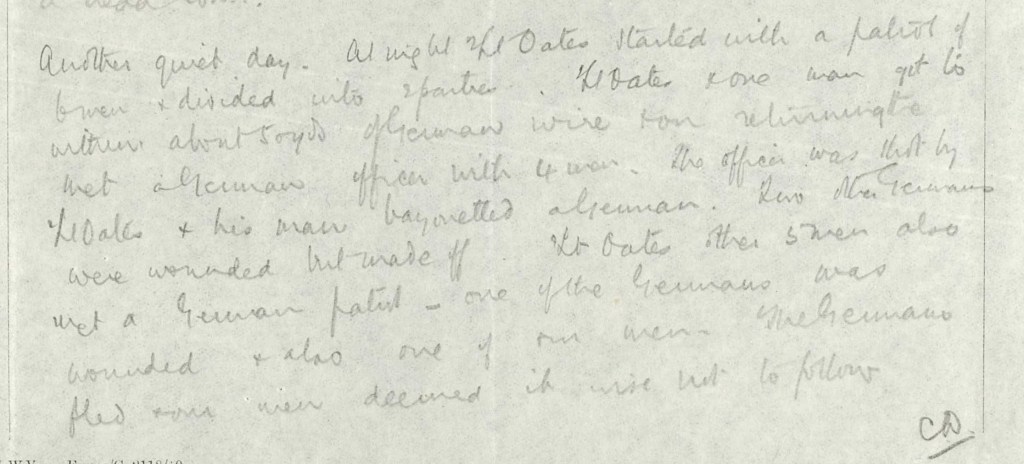 Another quiet day. At night Lt Oates started with a patrol of
6 men & divided into 2 parties. Lt Oates & one man got to
within about 50 yds of German wire & on returning
met a German officer with 4 men. The officer was shot by
Lt Oates & his man bayonetted a German. Two other Germans
were wounded but made off. Lt Oates other 5 men also
met a German patrol – one of the Germans was
wounded & also one of our men. The Germans
fled & our men deemed it wise not to follow
CD